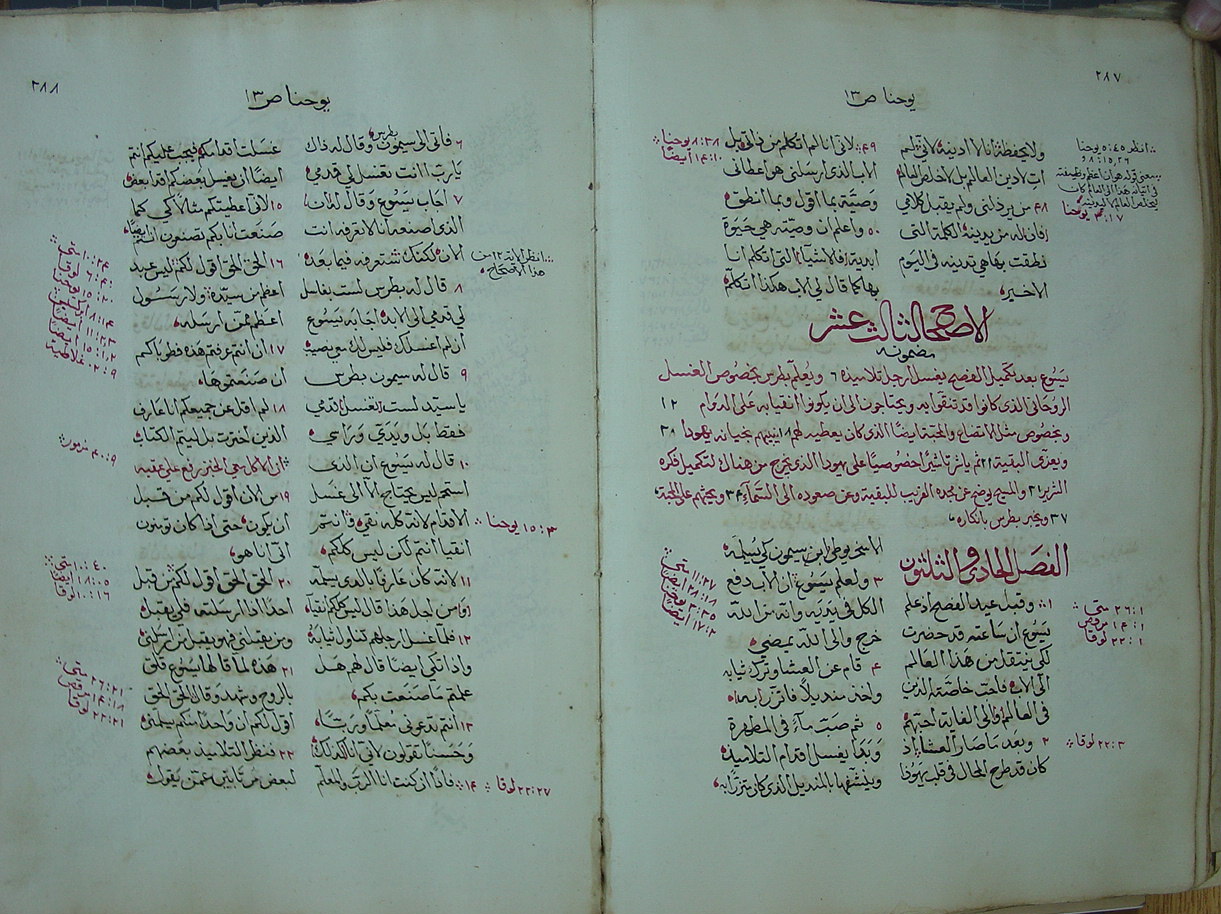 ٢٨٧
يوحنا ص ١٣
ولا يحفظه انا لا ادينه لاني لم
ات لادين العالم بل لاخلص العالم
٤٨ من يرذلني ولم يقبل كلامي
فان له من يدينه الكلمة التي
نطقت بها هي تدينه في اليوم
الاخير
٤٩ لاني انا لم اتكلم من ذاتي بل
الاب الذي ارسلني هو اعطاني
وصيّة بما اقول وبما انطق
٥٠ واعلم ان وصيّته هي حيوة
ابدية فالاشياء التي اتكلم انا
بها كما قال لي الاب هكذا اتكلم
انظر ٥:٤٥ يوحنا
٨:١٥،٢٦
٣:١٧ يوحنا
٨:٣٨ يوحنا
١٤:١٠ ايضًا
الاصحاح الثالث عشر
مضمونه
يسوع بعد تكميل الفصح يغسل ارجل تلاميذه ٦ ويعلّم بطرس بخصوص الغسل
الروحاني الذي كانوا قد تنقوا به ويحتاجون الى ان يكونوا انقيا به على الدوام ١٢
وبخصوص مثل الاتضاع والمحبة ايضًا الذي كان يعطيه لهم ١٨ ينبيهم بخيانة يهودا ٢١
ويعزّي البقية
الذي يخرج من هناك لتكميل فكره
الشرير ٣١ والمسيح يوضح عن مجده القريب للبقية وعن صعوده الى السماء ٣٤ ويحثهم على المحبة
٣٧ ويخبر بطرس بانكاره
الفصل الحادي والثلثون
١ وقبل عيد الفصح اذ علم
يسوع ان ساعته قد حضرت
لكي ينتقل من هذا العالم
الى الاب فاحب خاصته الذين
في العالم والى الغاية احبهم
٢ وبعد ما صار العشا اذ
كان قد طرح المحال في قلب يهوذا
الاسخريوطي ابن سيمون لكي يسلمه
٣ ولعلم يسوع ان الاب دفع
الكل في يديه وانه من الله
خرج والى الله يمضي
٤ قام عن العشا وترك ثيابه
واخذ منديلًا فاتزر به
٥ ثم صبّ ماءً في المطهرة
وبدأ يغسل اقدام التلاميذ
وينشفها بالمنديل الذي كان متزرًا به
٢٦:١ متى
١٤:١ مرقص
٢٢:١ لوقا
٢٢:٣ لوقا
١١:٢٧ متى
٢٨:١٨ ايضًا
٣:٣٥ يوحنا
١٧:٢ ايضًا
٢٨٨
يوحنا ص ١٣
٦ فاتى الى سيمون بطرس وقال له ذاك
يا رب اانت تغسل لي قدمي
٧ اجاب يسوع وقال له ان
الذي اصنعه انا لا تعرفه انت
الان لكنك ستعرفه فيما بعد
٨ قال له بطرس لست بغاسل
لي قدمي الى الابد اجابه يسوع
ان لم اغسلك فليس لك معي نصيب
٩ قال له سيمون بطرس
يا سيد لست تغسل قدمي
فقط بل ويديّ وراسي
١٠ قال له يسوع ان الذي
استحم ليس يحتاج الا الى غسل
الاقدام لانه كله نقي وانتم
انقيا انتم لكن ليس كلكم
١١ لانه كان عارفًا بالذي يسلمه
ومن اجل هذا قال ليس كلكم انقيا
١٢ فلما غسل ارجلهم تناول ثيابه
واذ اتكى ايضا قال لهم هل
علمتم ما صنعت بكم
١٣ انتم تدعوني معلّمًا وربًّا
وحسنًا تقولون لاني انا كذلك
١٤ فاذا ان كنت انا الرب والمعلم
غسلت اقدامكم فيجب عليكم انتم
ايضًا ان يغسل بعضكم اقدام بعض
١٥ لاني اعطيتكم مثالًا لكي كما
صنعت انا بكم تصنعون انتم ايضًا
١٦ الحق الحق اقول لكم ليس عبد
اعظم من سيده ولا رسول
اعظم ممن ارسله
١٧ ان انتم عرفتم هذه فطوباكم
ان صنعتموها
١٨ لم اقل عن جميعكم انا عارف
الذين اخترت بل ليتم الكتاب
ان الآكل معي الخبز رفع علي عقبه
١٩ من الان اقول لكم من قبل
ان يكون حتى اذا كان تومنون
اني انا هو
٢٠ الحق الحق اقول لكم من قبل
احدًا اذا ارسلته فلي يقبل
ومن يقبلني فهو يقبل من ارسلني
٢١ هذه لما قالها يسوع قلق
بالروح وشهد وقال الحق الحق
اقول لكم ان واحدًا منكم يسلمني
٢٢ فنظر التلاميذ بعضهم
لبعض مرتابين عمّن يقول
انظر الاية ١٢ من
هذا الاصحاح
١٥:٣ يوحنا
٢٢:٢٧ لوقا
١٠:٢٤ متى
٦:٤٠ لوقا
١٥:٢٠ يوحنا
٤٠:٩ مزمور
١٠:٤٠ متى
١٨:٥ ايضًا
١٠:١٦ لوقا
٢٦:٢١ متى
١٤:١٨ مرقص
٢٢:٢١ لوقا